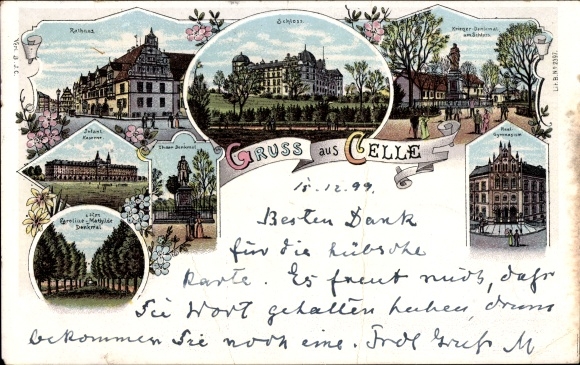 Rathaus
Schloss.
Krieger-Denkmal
am Schloss.
Lit. B. Nº 2397.
Infant.
Kaserne.
Thaer Denkmal
Real-
Gymnasium
GRUSS aus CELLE
Caroline Mathilde
Denkmal
15.12.99.
Besten Dank
für die hübsche
Karte. Es freut mich, dass
Sie Wort gehalten haben, drum
bekommen Sie noch eine. Frdl Gruß M